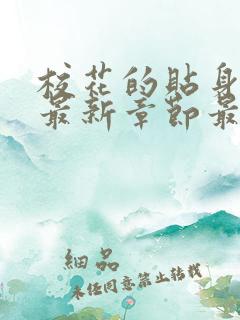 校花的贴身
最新章节最
細品
未经同意禁止转载